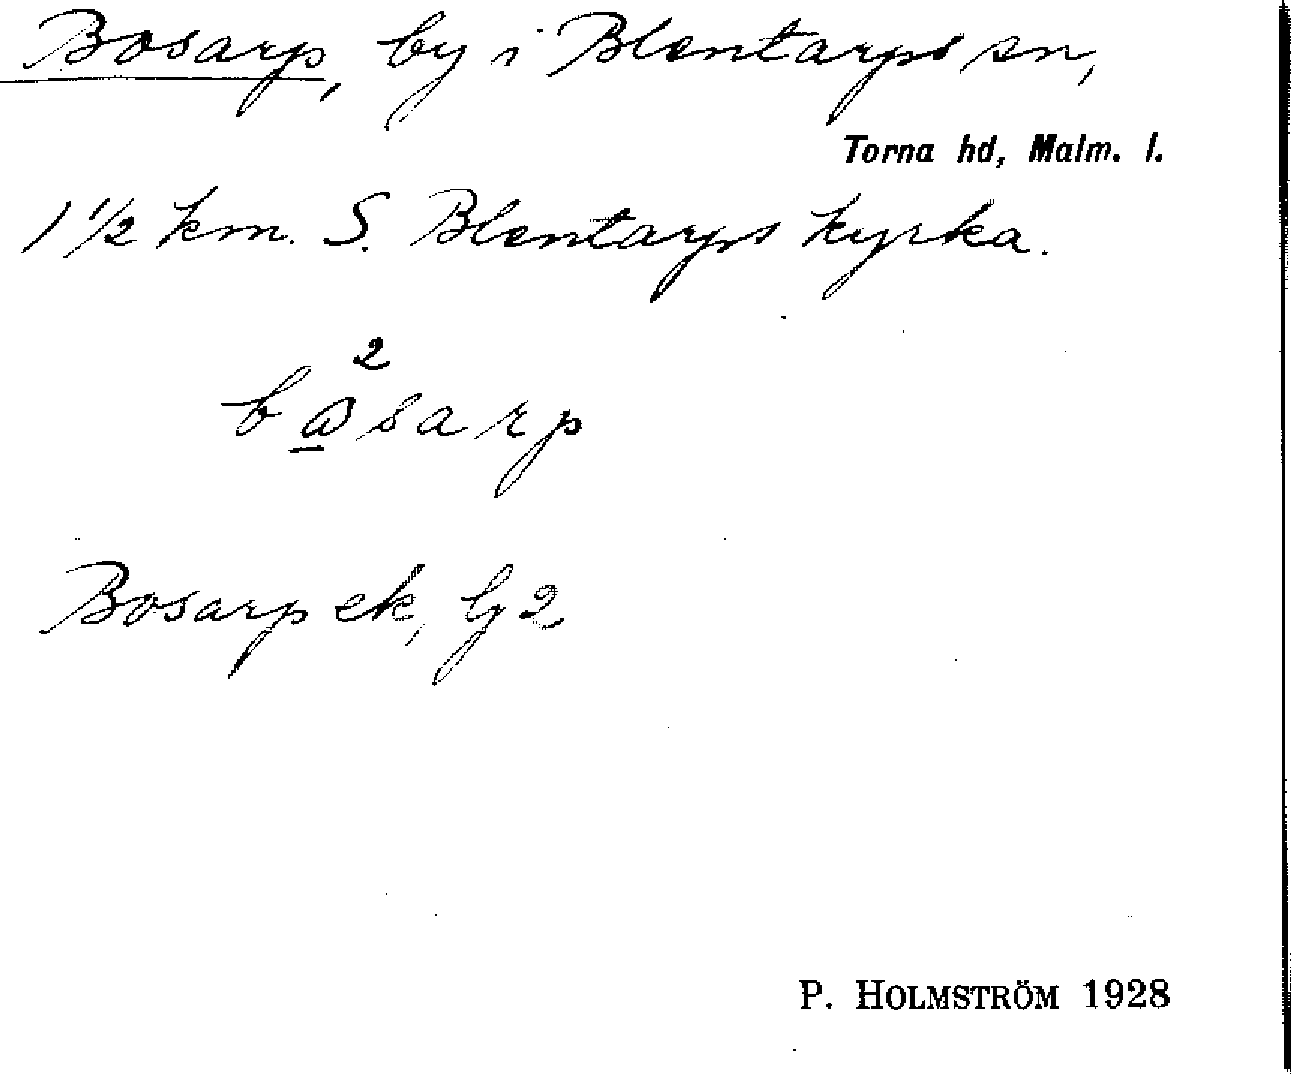 Bosarp, by i Blentarps sn,
Torna hd, Malm. l.
1 1/2 km. S. Blentarps kyrka.
2
basarp
Bosarp ek, bl 2
P. HOLMSTRÖM 1928